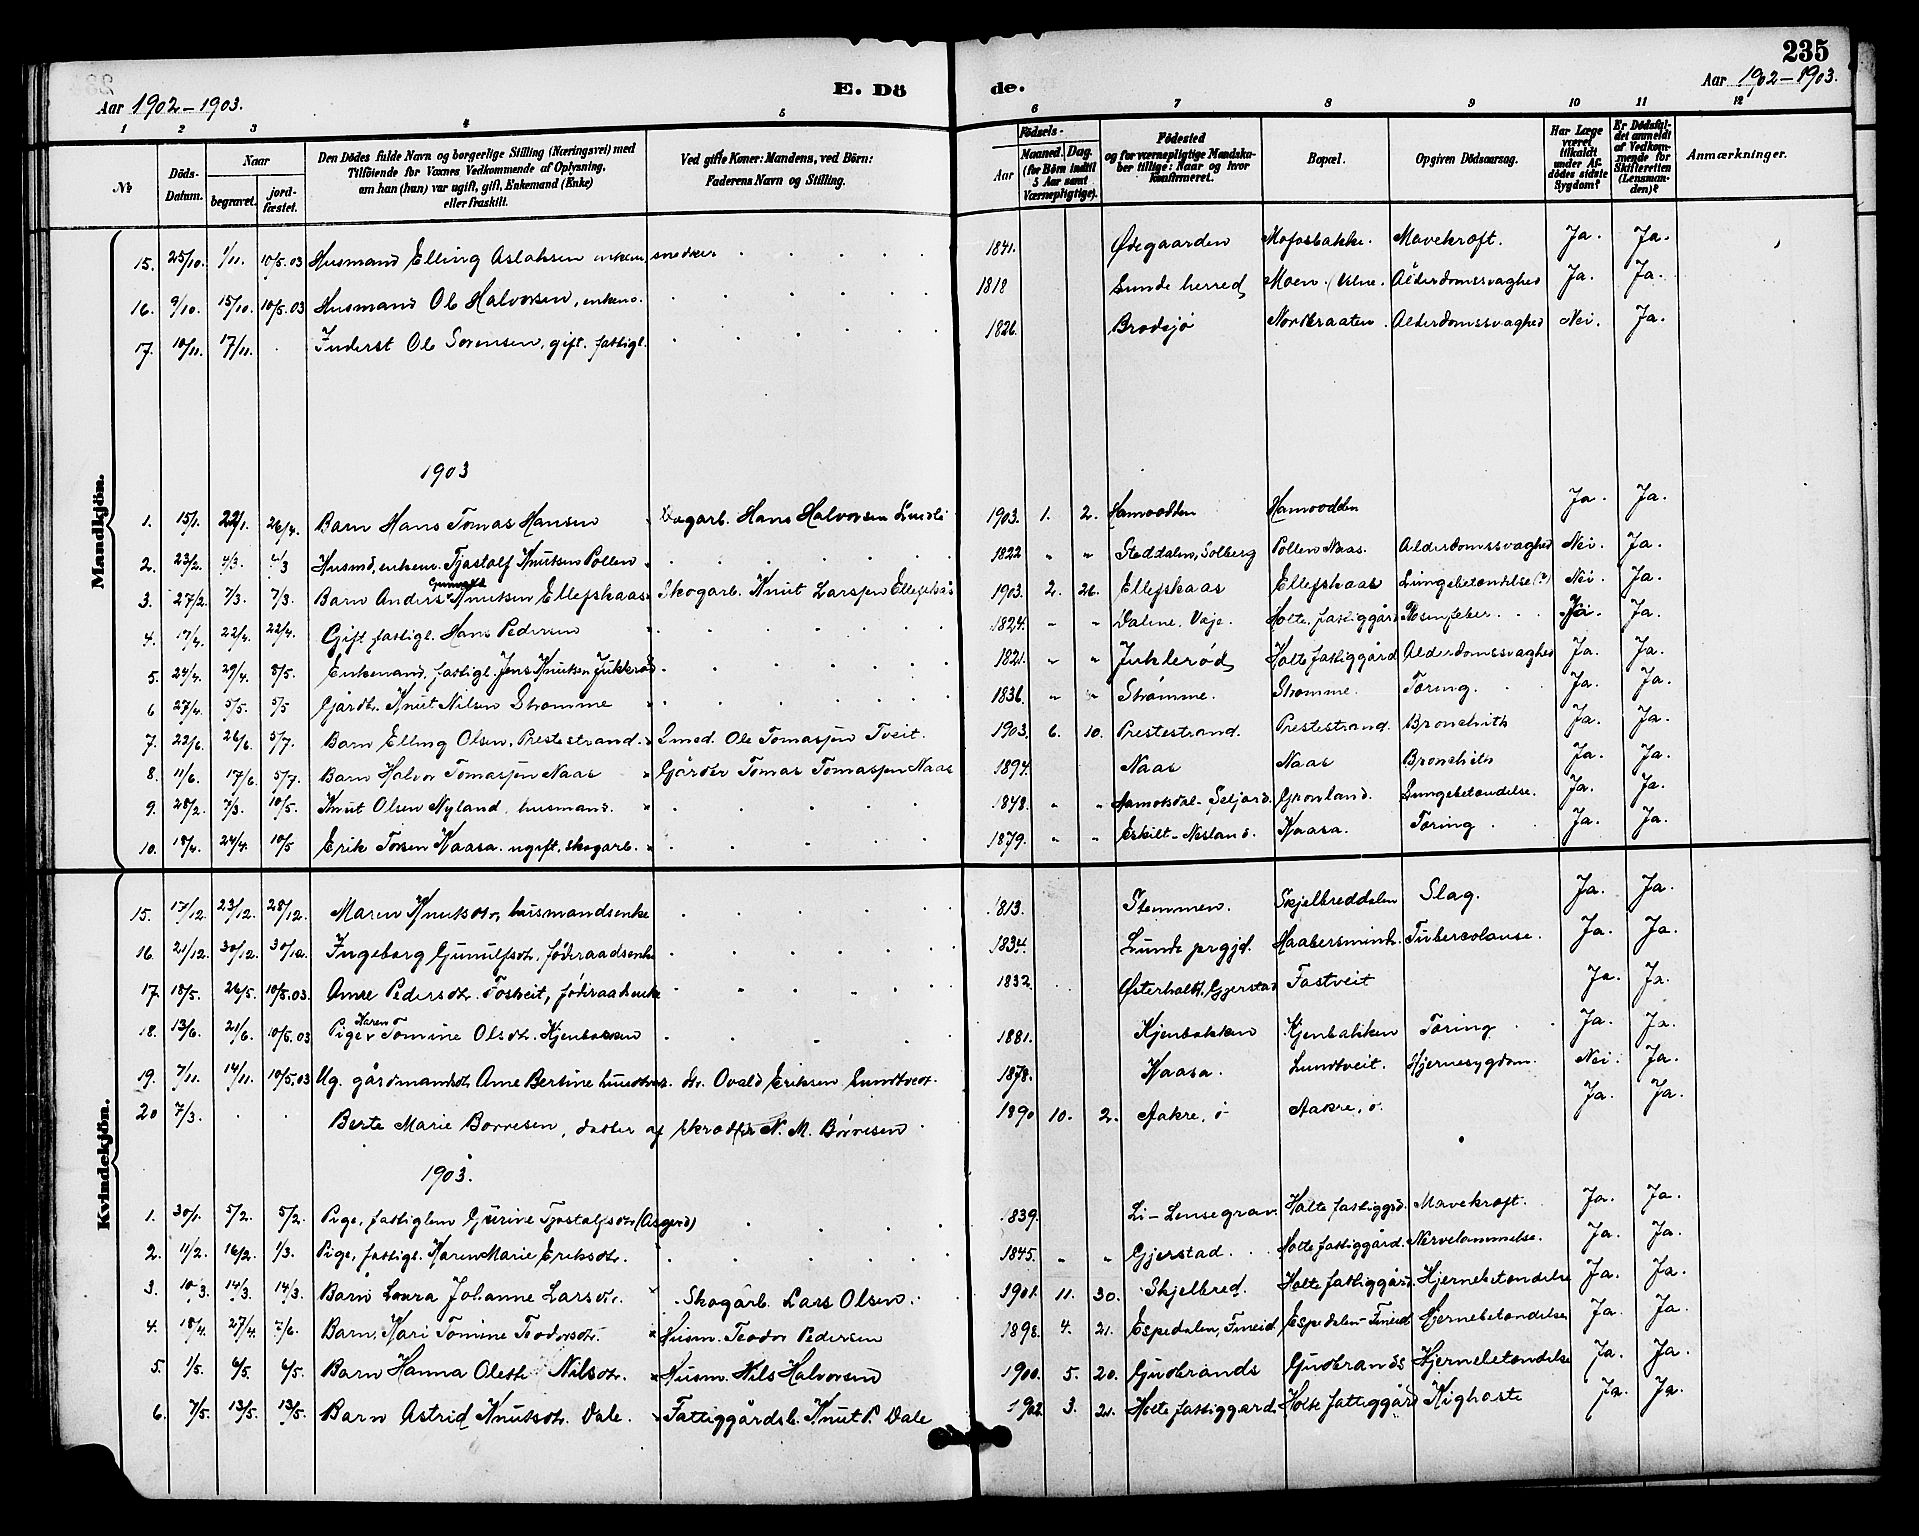 235
Aar 1902-1903.
E. Dö
de.
Aar 1902-1903.
1 2 3 4 5 6 7 8 9 10 11 12
№
Döds-Datum.
Naar
begravet.
jord-fæstet.
Den Dödes fulde Navn og borgerlige Stilling (Næringsvei) med
Tilföiende for Voxnes Vedkommende af Oplysning,
om han (hun) var ugift, gift, Enkemand (Enke)
eller fraskilt.
Ved gifte Koner: Mandens, ved Börn:
Faderens Navn og Stilling.
Födsels-
Aar
Maaned. Dag.
(for Börn indtil
5 Aar samt
Værnepligtige).
Födested
og for værnepligtige Mandska-
ber tillige: Naar og hvor
konfirmeret.
Bopæl.
Opgiven Dödsaarsag.
Har Læge
været
tilkaldt
under Af-
dödes sidste
Sygdom?
Er Dödsfal-
det anmeldt
af Vedkom-
mende for
Skifteretten
(Lensman-
den)?
Anmærkninger.
Mandkjön.
15. 25/10. 1/11. 10/5.03 Husmand Elling Aslaksen enkem. snedker 1841. Ødegaarden Mofosbakke. Mavekræft. Ja. Ja.
16. 9/10. 15/10. 10/5.03 Husmand Ole Halvorsen, enkem. 1818 Lunde herred, Moen Alderdomssvaghed Ja. Ja.
17. 10/11. 17/11. Inderst Ole Sørensen, gift. fattigl. 1826. Brødsjø Nordbraaten. Alderdomssvaghed Nei. Ja.
1903
1. 15/1. 22/1. 26/4. Barn Hans Tomas Hansen Skogarb. Hans Halvorsen 1903. 1. 2. Hamrodden Hamrodden Ja. Ja.
2. 23/2. 4/3. 4/3 Husmd, enkem. Tjøstolf Knutsen Pollen 1822 " " Steddalen, Solberg Pollen Naas. Alderdomssvaghed Nei. Ja.
3. 27/2. 7/3. 7/3. Barn Anders Knutsen Ellefskaas Skogarb. Knut Larssen Ellefskås 1903. 2. 26. Ellefskaas Ellefskaas Lungebetændelse (?) Nei. Ja.
4. 17/4. 22/4. 22/4. Gift, fattigl. Hans Pedersen 1824. " " Dalene. Holte fattiggård Rosenfeber. Ja. Ja.
5. 24/4. 29/4. 8/5. Enkemand, fattigl. Jens Knutsen Juklerød 1821. " " Juklerød, Holte fattiggård Alderdomssvaghed Ja. Ja.
6 27/4. 5/5. 5/5 Gårdbr. Knut Nilsen Strømme 1836. " " Strømme. Strømme. Tæring. Ja. Ja.
7. 22/6. 26/6. 5/7. Barn Elling Olsen, Prestestrand. Smed. Ole Tomassen Tveit. 1903. 6. 10. Prestestrand. Prestestrand. Bronchitis Ja. Ja.
8. 11/6. 17/6. 5/7. Barn Halvor Tomassen Naas Gårdbr Tomas Tomassen Naas 1894. Naas Naas Bronchitis Ja. Ja.
9. 28/2. 7/3. 10/5. Knut Olsen Nyland, husmand. 1848. " " Aamotsdal - Seljord. Grønland. Lungebetændelse. Ja. Ja.
10. 18/4. 24/4. 10/5 Erik Torsen Kaasa. ugift. skogarb. 1879. " " Eskilt - Nesland. Kaasa. Tæring Ja. Ja.
Kvindekjön.
15. 17/12. 23/12. 28/12. Maren Knutsdtr, husmandsenke 1813. Stemmen. Skjelbreddalen Slag. Ja. Ja.
16. 21/12. 30/12. 30/12. Ingeborg Gunulfsdtr, føderaadsenke 1834. Lunde prgjd. Tuberculouse. Ja. Ja.
17. 18/5. 26/5. 10/5.03. Anne Pedersdtr. Fostveit, føderaadsenke 1832. Østerholt, Gjerstad Fastveit Ja. Ja.
18. 13/6. 21/6. 10/5.03 Pige Karen Tomine Olsdtr. Kjenbakken 1881. Kjenbakken Kjenbakken Tæring Ja. Ja.
19. 7/11. 14/11. 10/5.03 Ug. gårdmandsdtr Anne Bertine Ovald Eriksen Lundtveit. 1878. Kaasa. Lundtveit. Hjernesygdom. Nei. Ja.
20 7/3. Berte Marie Børresen, datter af skrædder N. M. Børresen 1890 10. 2. Aakre, ø Aakre, ø. Ja. Ja.
1903.
1. 30/1. 5/2. 5/2. Pige, fattiglem Gurine Tjøstolfsdtr 1839. Li - Lensegrav. Holte fattiggrd. Mavekræft. Ja. Ja.
2. 11/2. 16/2. 1/3. Pige, fattigl. Karen Marie Eriksdtr. 1845. " " Gjerstad. Holte fattiggård. Nervelammelse. Ja. Ja.
3. 10/3. 14/3. 14/3. Barn Laura Johanne Larsdtr. Skogarb. Lars Olsen. 1901. 11. 30. Skjelbred. Holte fattiggård. Hjernebetændelse Ja. Ja.
4. 18/4. 27/4. 7/6. Barn, Kari Tomine Teodorsdtr. Husm. Teodor Pedersen 1898. 4. 21. Espedalen, Eneid. Espedalen - Eneid Hjernebetændelse Ja. Ja.
5. 1/5. 6/5. 6/5. Barn Hanna Oleth. Nilsdtr. Husm. Nils Halvorsen 1900. 5. 20. Gudbrands Gudbrands Hjernebetændelse Ja. Ja.
6. 7/5. 13/5. 13/5. Barn Astrid Knutsdtr. Dale. Fattiggårdsb. Knut P. Dale 1902. 3. 21. Holte fattiggård. Holte fattiggård Kighoste Ja. Ja.